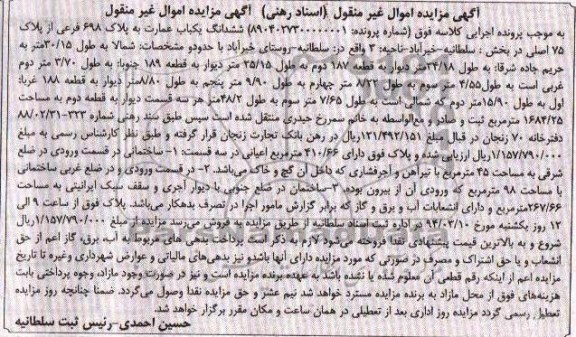 آگهی مزایده اموال غیر منقول (اسناد رهنی) آگهی مزایده اموال غیر منقول
به موجب پرونده اجرایی کلاسه فوق (شماره پرونده: ۸۹۰۴۰۲۷۳۰۰۰۰۰۰۱) ششدانگ یکباب عمارت به پلاک ۶۹۸ فرعی از پلاک
۷۵ اصلی در بخش : سلطانیه-خیرآباد-ناحیه: ۳ واقع در: سلطانیه-روستای خیرآباد با حدود‌و مشخصات: شمالا به طول ۳۰/۱۵متر به
حریم جاده شرقا: به طول ۳۴/۱۸متر دیوار به قطعه ۱۸۷ دوم به طول ۲۵/۱۵ متر دیوار به قطعه ۱۸۹ جنوبا: به طول ۳/۷۰ متر دوم
غربی است به طول۲/۵۵ متر سوم به طول ۸/۲۲ متر چهارم به طول ۹/۹۰ متر پنجم به طول ۸/۸۰متر دیوار به قطعه ۱۸۸ غربا:
اول به طول ۱۵/۹۰متر دوم که شمالی است به طول ۷/۶۵ متر سوم به طول ۴۸/۲متر هر سه قسمت دیوار به قطعه دوم به مساحت
۱۶۸۴/۲۵ مترمربع ثبت و صادر و مع‌الواسطه به خانم سمرخ حیدری منتقل شده است سپس طبق سند رهنی شماره ۳۳۳-۸۸/۰۲/۳۱
دفترخانه ۷۰ زنجان در قبال مبلغ ۱۲۱/۴۹۲/۱۵۱ریال در رهن بانک تجارت زنجان قرار گرفته و طبق نظر کارشناس رسمی به مبلغ
۱/۱۵۷/۷۹۰/۰۰۰ریال ارزیابی شده و پلاک فوق دارای ۴۱۰/۶۶ مترمربع اعیانی در سه قسمت: ۱- ساختمانی در قسمت ورودی در ضلع
شرقی به مساحت ۴۵ مترمربع با تیرآهن و آجرفشاری که داخل آن گچ و خاک می‌باشد. ۲- در قسمت ورودی و در ضلع غربی ساختمانی
با مساحت ۹۸ مترمربع که ورودی آن از بیرون بوده. ۳-ساختمان در ضلع جنوبی با دیوار آجری و سقف سبک ایرانیتی به مساحت
۲۶۷/۶۶مترمربع و دارای انشعابات آب و برق و گاز که برابر گزارش مامور اجرا در تصرف بدهکار می‌باشد. پلاک فوق از ساعت ۹ الی
۱۲ روز یکشنبه مورخ ۹۴/۰۳/۱۰ در اداره ثبت اسناد سلطانیه از طریق مزایده به فروش می‌رسد مزایده از مبلغ ۱/۱۵۷/۷۹۰/۰۰۰ریال
شروع و به بالاترین قیمت پیشنهادی نقدا فروخته می‌شود لازم به ذکر است پرداخت بدهی های مربوط به آب، برق، گاز اعم از حق
انشعاب و یا حق اشتراک و مصرف در صورتی که مورد مزایده دارای آنها باشد‌و نیز بدهی‌های مالیاتی و عوارض شهرداری وغیره تا تاریخ
مزایده اعم از اینکه رقم قطعی آن معلوم شده یا نشده باشد به عهده برنده مزایده است و نیز در صورت وجود مازاد، وجوه پرداختی بابت
هزینه‌های فوق از محل مازاد به برنده مزایده مسترد خواهد شد نیم عشر و حق مزایده نقدا وصول می‌گردد. ضمنا چنانچه روز مزایده
تعطیل رسمی گردد مزایده روز اداری بعد از تعطیلی در همان ساعت و مکان مقرر برگزار خواهد شد.
حسین احمدی-رئیس ثبت سلطانیه